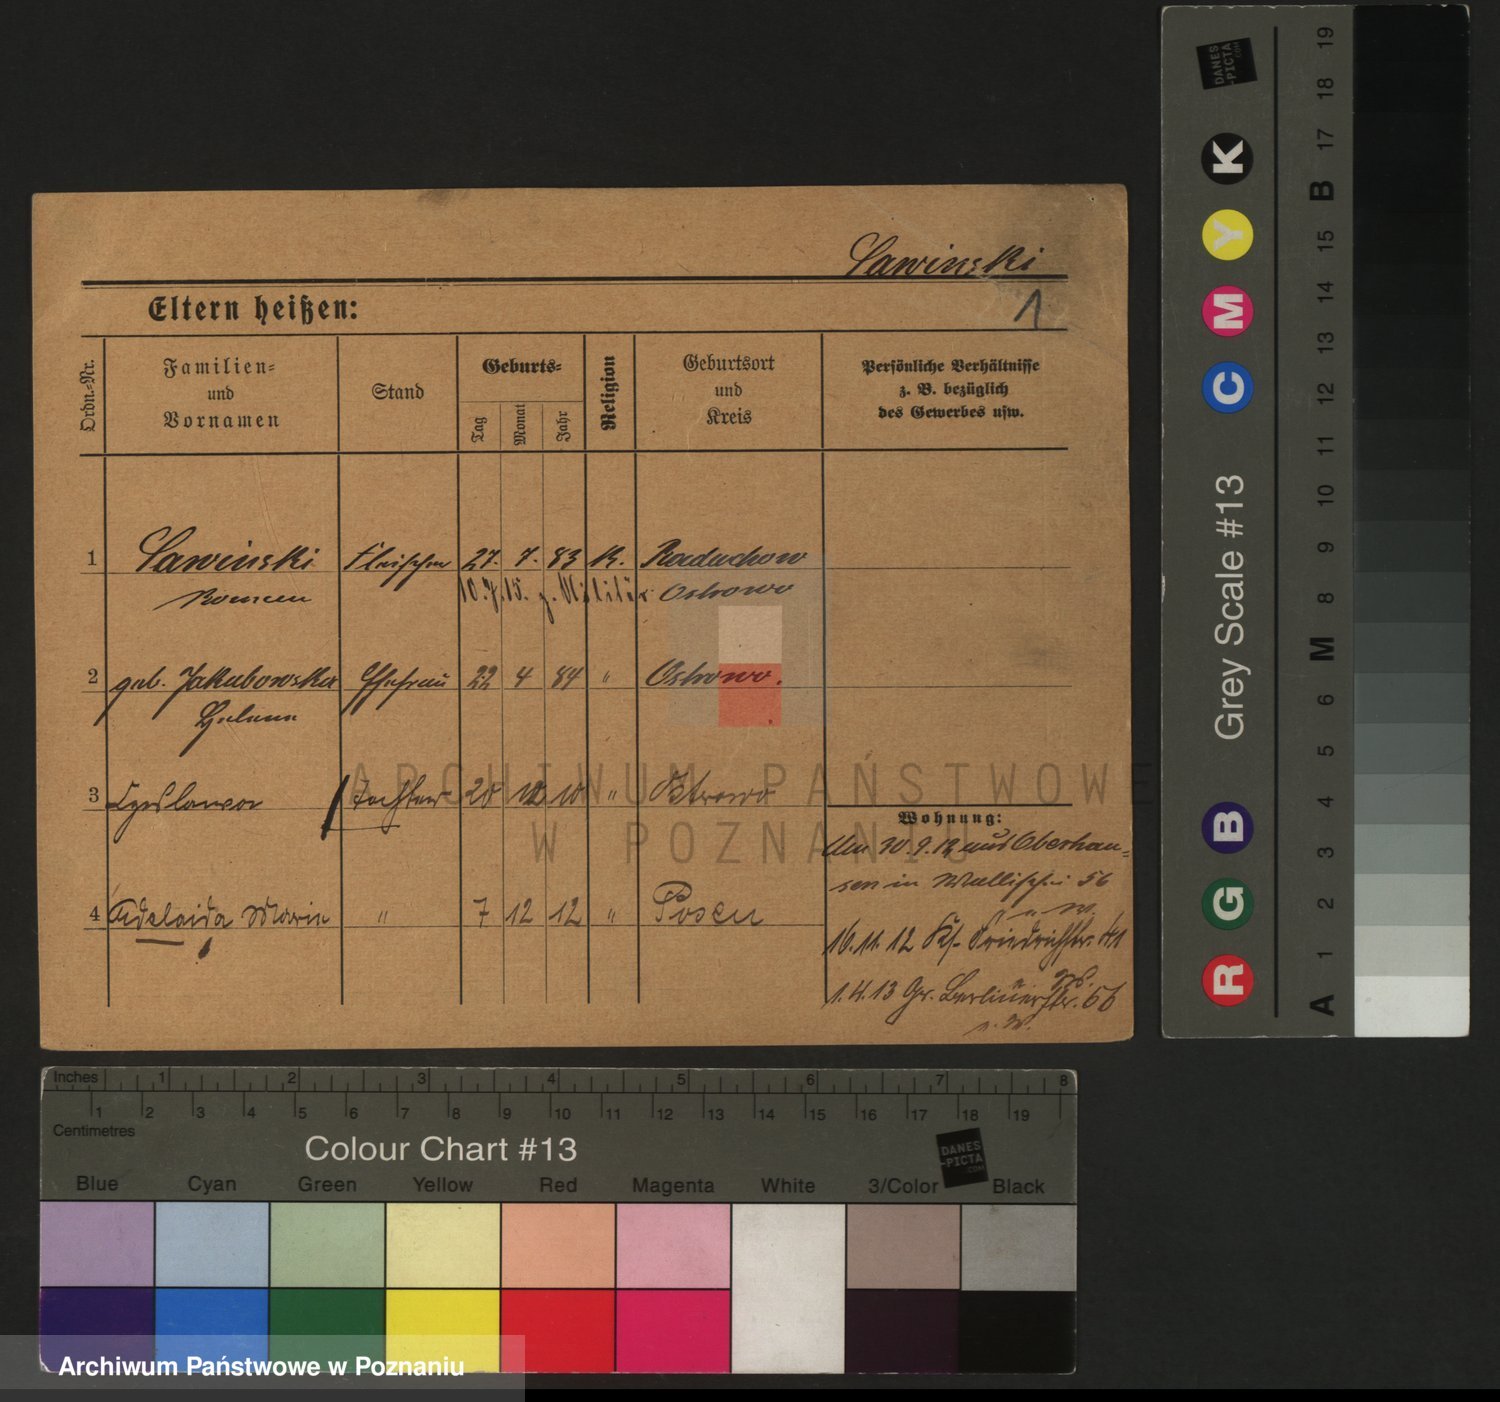 Sawinski
1
Eltern heißen:
Ordn.-Nr.
Familien-
und
Vornamen
Stand
Geburts-
Tag
Monat
Jahr
Religion
Geburtsort
und
Kreis
Persönliche Verhältnisse
z. B. bezüglich
des Gewerbes usw.
1 Sawinski Fleischer 27. 7. 83 K. Raduchow
Roman 10.7.15. z. Militär Ostrowo
2 geb. Jakubowska Ehefrau 22 4 84 " Ostrowo.
Helena
3 Tochter 10 " Ostrowo
4 Adelaida Maria " 7 12 12 " Posen
Wohnung:
30.9.12 aus Oberhau-
sen in Wallischei 56
16.11.12 Friedrichstr. 41
1.4.13 Gr. Berlinerstr. 66
ARCHIWUM PAŃSTWOWE
W POZNANIU
Inches 1 2 3 4 5 6 7 8
1 2 3 4 5 6 7 8 9 10 11 12 13 14 15 16 17 18 19
Centimetres
Colour Chart #13
DANES
-PICTA
.COM
Blue Cyan Green Yellow Red Magenta White 3/Color Black
Archiwum Państwowe w Poznaniu
DANES
-PICTA
.COM
R G B Grey Scale #13 C M Y K
A 1 2 3 4 5 6 M 8 9 10 11 12 13 14 15 B 17 18 19